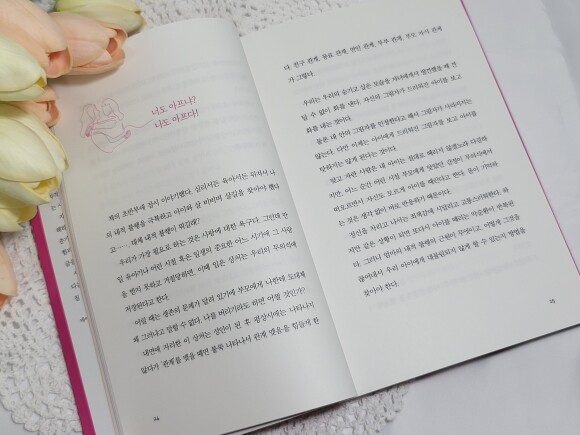 너도 아프냐?
나도 아프다!
책의 초반부에 잠시 이야기했다. 심리서는 육아서는 뒤져서 나
의 내적 불행을 극복하고 아이와 살 비비며 살길을 찾아야 했다
고……. 대체 내적 불행이 뭐길래?
우리가 가장 필요로 하는 것은 사랑에 대한 욕구다. 그런데 만
일 유아기나 어린 시절 혹은 일생의 중요한 어느 시기에 그 사랑
을 받지 못하고 거절당하면, 이때 입은 상처는 우리의 무의식에
저장된다고 한다.
어릴 때는 생존의 문제가 달려 있기에 부모에게 나한테 도대체
왜 그러냐고 말할 수 없다. 나를 버리기라도 하면 어쩔 것인가?
내면에 자리한 이 상처는 성인이 된 후 평상시에는 나타나지
않다가 '관계'를 맺을 때면 불쑥 나타나서 관계 맺음을 힘들게 한
24
다. 친구 관계, 동료 관계, 연인 관계, 부부 관계, 부모 자식 관계
가 그렇다.
우리는 우리의 숨기고 싶은 모습을 자녀에게서 발견했을 때 견
딜 수 없이 화를 낸다. 자신의 그림자가 드리워진 아이를 보고
화를 내는 것이다.
물론 내 안의 그림자를 인정한다고 해서 그림자가 사라지지는
않는다. 다만 이제는 아이에게 드리워진 그림자를 보고 아이를
닦달하지는 않게 된다는 것이다.
맞고 자란 사람은 내 아이는 절대로 때리지 않겠노라 다짐하
지만, 어느 순간 어린 시절 부모에게 맞았던 감정이 무의식에서
떠오르면서 자신도 모르게 아이를 때린다고 한다. 몸이 기억하
는 것은 생각 없이 바로 반응하기 때문이다.
정신을 차리고 나서는 죄책감에 시달리고 고통스러워한다. 하
지만 같은 상황이 되면 또다시 아이를 때리는 악순환이 반복된
다. 그러니 엄마의 내적 불행의 근원이 무엇이고, 어떻게 그것을
끊어내서 우리 아이에게 대물림되지 않게 할 수 있는지 방법을
찾아야 한다.
25